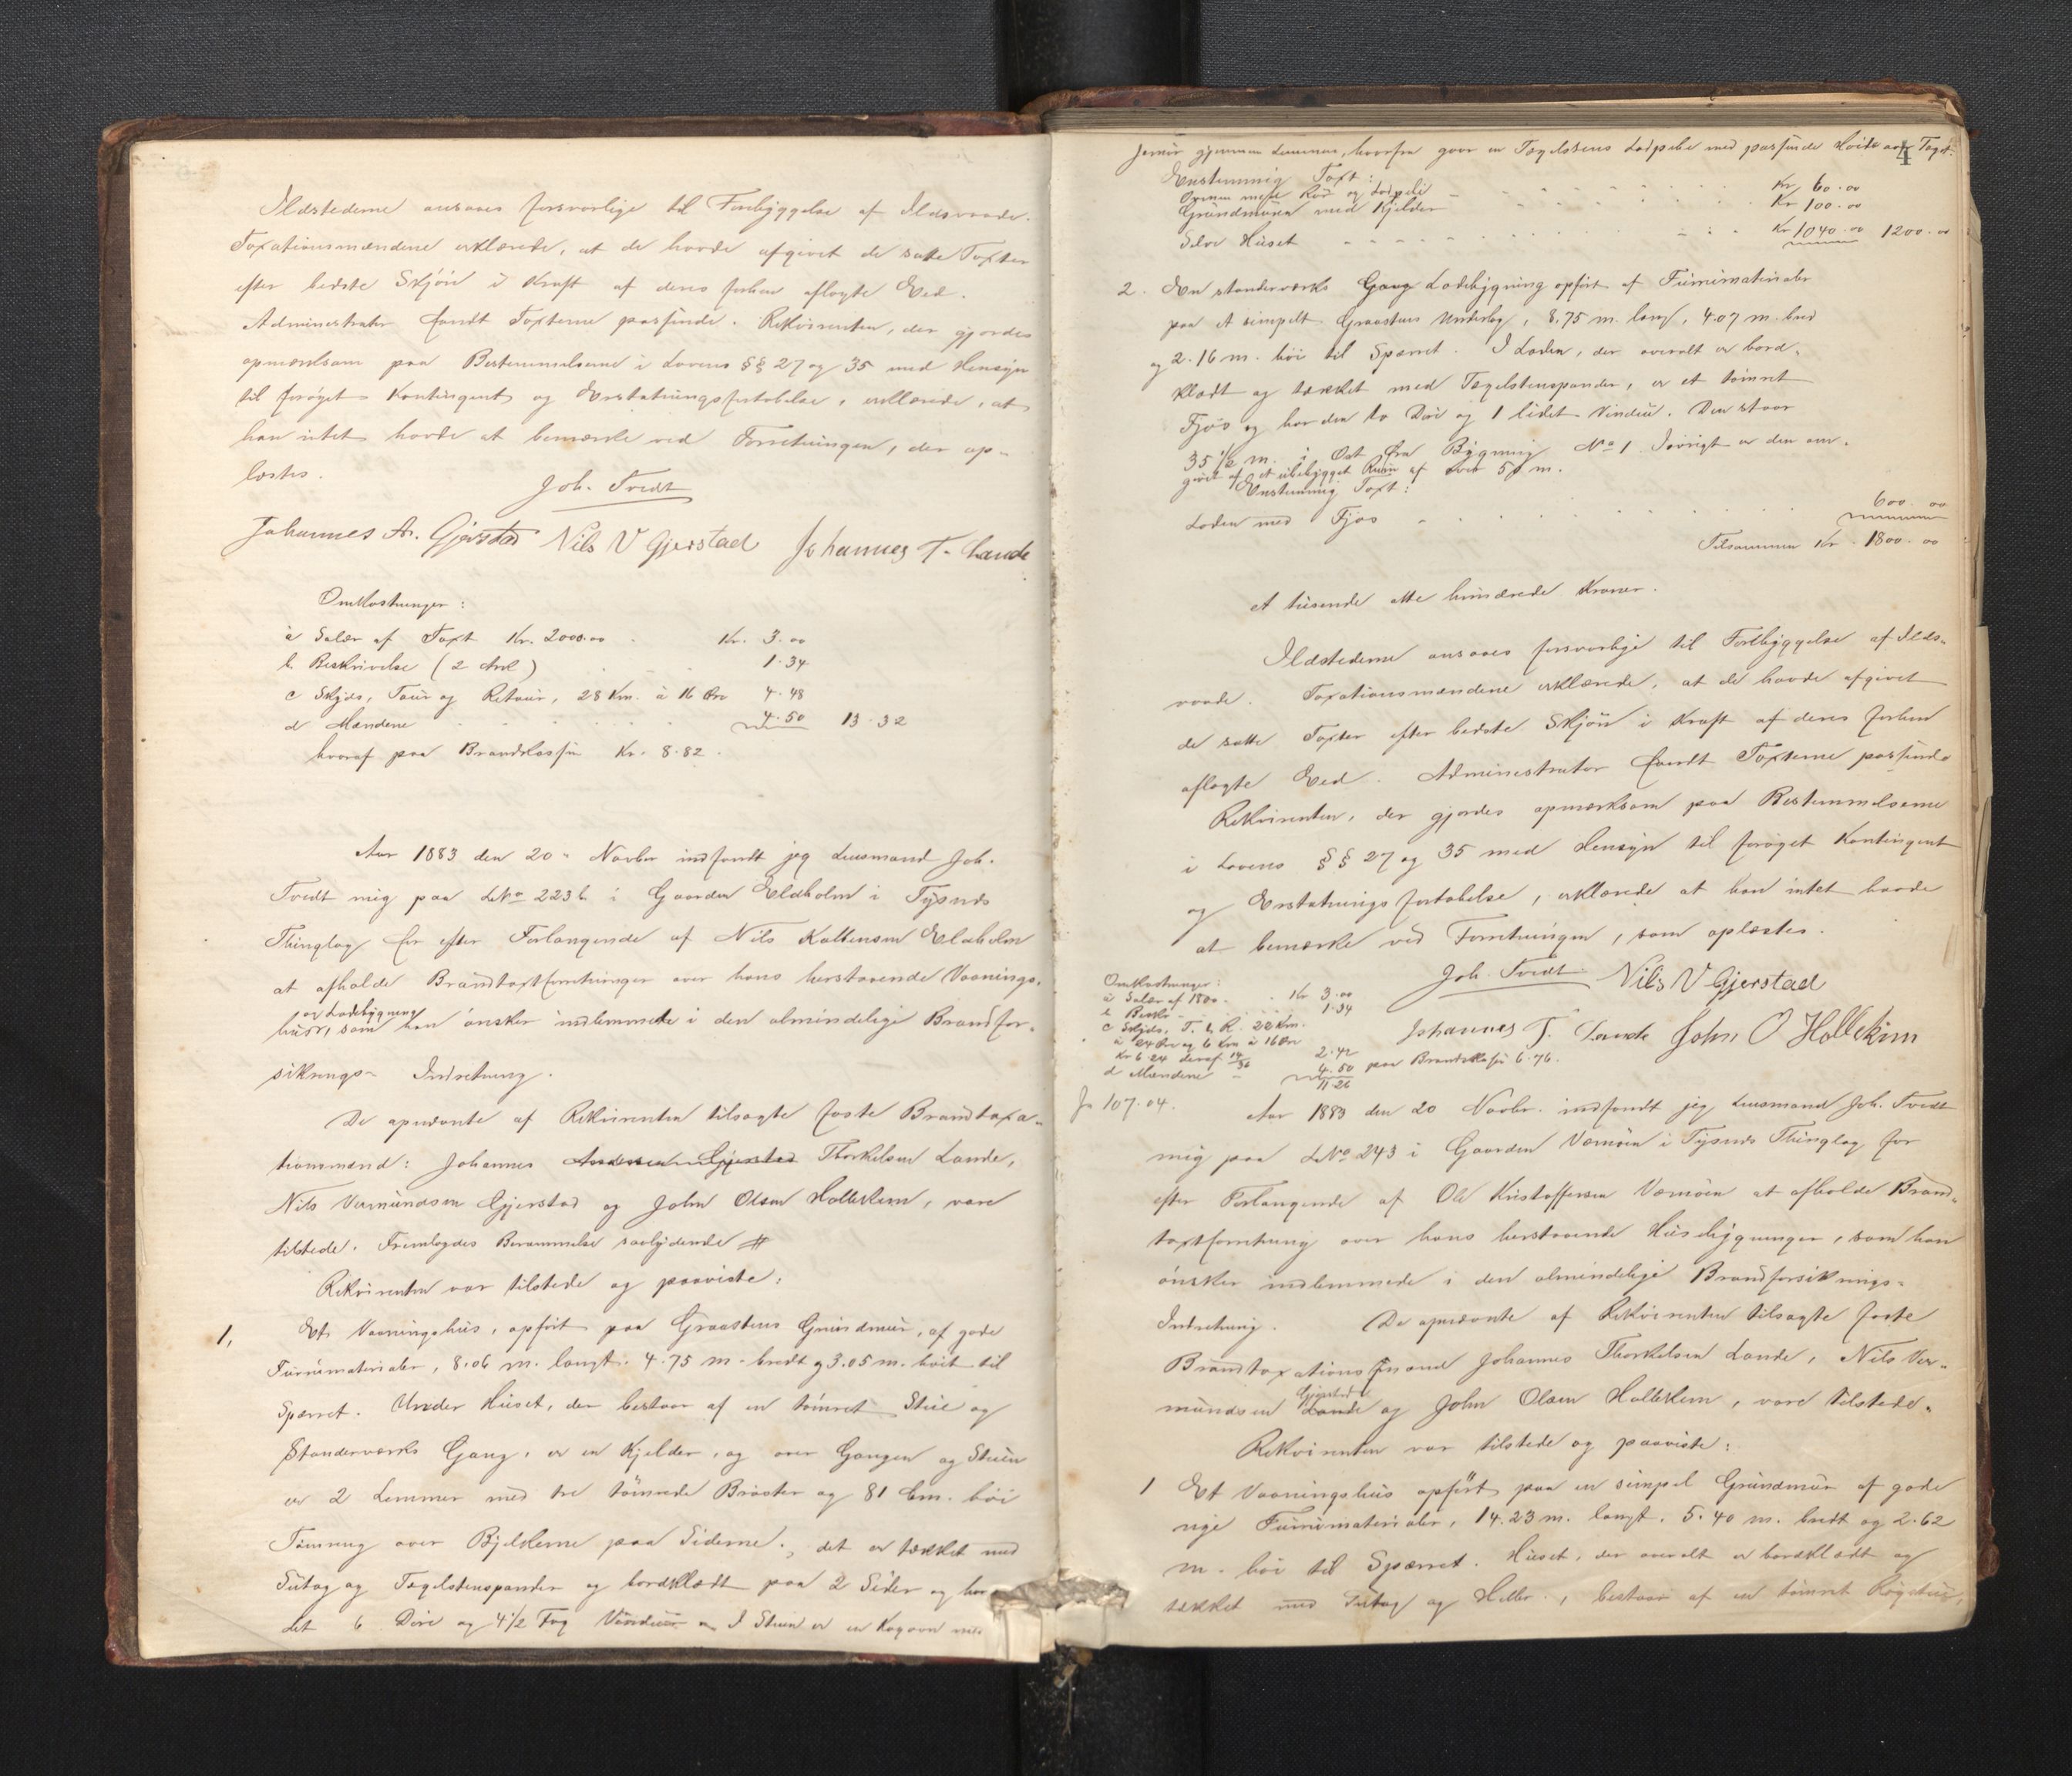 Ildstederne ansaaes forsvarlige til Forebyggelse af Ildsvaade.
Taxationsmændene erklærede, at de havde afgivet de satte Taxter
efter bedste Skjøn i Kraft af deres forhen aflagte Eed.
Administrator fandt Taxterne passende. Rekvirenten, der gjordes
opmærksom paa Bestemmelserne i Lovens §§ 27 og 35 med Hensyn
til forøget Kontingent og Erstatningsfortabelse, erklærede, at
han intet havde at bemærke ved Forretningen, der op-
læstes.
Joh. Tvedt
Johannes A. Gjerstad Nils V Gjerstad Johannes T. Lande
Omkostninger:
a Salær af Taxt Kr. 2000.00 Kr. 3.00
b. Beskrivelse (2 Ark) 1.34
c Skyds, Tour og Retour, 28 Km. à 16 Øre 4.48
d Mændene 4.50 13.32
hvoraf paa Brandkassen Kr. 8.82.
Aar 1883 den 20de Novbr indfandt jeg Lensmand Joh.
Tvedt mig paa LNo 223 b i Gaarden Eldholm i Tysnes
Thinglag for efter Forlangende af Nils Eldholm
at afholde Brandtaxtforretninger over hans herstaaende Vaanings-
og Ladebygning
huse, som han ønsker indlemmede i den almindelige Brandfor-
sikrings- Indretning.
De opnævnte af Rekvirenten tilsagte faste Brandtaxa-
tionsmænd: Johannes Andersen Gjerstad Thorkelsen Lande,
Nils Vermundsen Gjerstad og John Olsen Hollekim, vare
tilstede. Fremlagdes Berammelse saalydende #
Rekvirenten var tilstede og paaviste:
1, Et Vaaningshus, opført paa Graastens Grundmur, af gode
Furumaterialer, 8.06 m. langt. 4.75 m. bredt og 3.05 m. høit til
Spærret. Under Huset, der bestaar af en tømret Stue og
Standerværks Gang, er en Kjelder, og over Gangen og Stuen
er 2 Lemmer med tre tømrede Brøster og 81 Cm. høi
Tømring over Bjelkerne paa Siderne., det er tækket med
Sutag og Tagelstenspander og bordklædt paa 2 Sider og har
det 6 Døre og 4 1/2 Fag Vinduer I Stuen er en Kogovn med
4
Jernrør gjennem Lemmen, hvorfra gaar en Tagelstens Ladpibe med passende Høide over Taget.
Enstemmig Taxt:
Ovnen med Rør og Ladpibe Kr 60.00
Grundmuren med Kjelder Kr 100.00
Selve Huset Kr 1040.00 1200.00
2. En standerværks Gang Ladebygning opført af Furumaterialer
paa et simpelt Graastens Underlag, 8,75 m. lang, 4.07 m. bred
og 2.16 m. høi til Spærret. I Laden, der overalt er bord-
klædt og tækket med Tagelstenspander, er et tømret
Fjøs og har den to Døre og 1 lidet Vindue. Den staar
35 1/2 m. i Øst fra Bygning No 1. Iøvrigt er den om-
givet af et ubebygget Rum af over 50 m.
Enstemmig Taxt:
Laden med Fjøs 600.00
Tilsammen Kr. 1800.00
et tusende otte hundrede Kroner.
Ildstederne ansaaes forsvarlige til Forebyggelse af Ilds-
vaade. Taxationsmændene erklærede, at de havde afgivet
de satte Taxter efter bedste Skjøn i Kraft af deres forhen
aflagte Eed. Administrator fandt Taxterne passende
Rekvirenten, der gjordes opmærksom paa Bestemmelserne
i Lovens §§ 27 og 35 med Hensyn til forøget Kontingent
og Erstatningsfortabelse, erklærede at han intet havde
at bemærke ved Forretningen, som oplæstes.
Joh. Tvedt Nils V Gjerstad
Johannes T. Lande John O Hollekim
Omkostninger:
a Salær af 1800. Kr 3.00
b Beskr 1.34
c Skyds, T. & R. 22 Km.
à 24 Øre og 6 Km à 16 Øre
Kr 6.24 deraf 14/36 2.42
d Mændene 4.50 paa Brandkassen 6.76.
11.26
Jr 107.04.
Aar 1883 den 20 Novbr. indfandt jeg Lensmand Joh. Tvedt
mig paa LNo 243 i Gaarden Vernøen i Tysnes Thinglag for
efter Forlangende af Ole Kristoffersen Vernøen at afholde Brand-
taxtforretning over hans herstaaende Husebygninger, som han
ønsker indlemmede i den almindelige Brandforsikrings-
Indretning. De opnævnte af Rekvirenten tilsagte faste
Brandtaxationsmænd Johannes Thorkelsen Lande, Nils Ver-
Gjerstad
mundsen Lande og John Olsen Hollekim, vare tilstede.
Rekvirenten var tilstede og paaviste:
1 Et Vaaningshus opført paa en simpel Grundmur af gode
nye Furumaterialer, 14.23 m. langt. 5.40 m. bredt og 2.62
m. høi til Spærret. Huset, der overalt er bordklædt og
tækket med Sutag og Heller., bestaar af en tømret Røgstue,